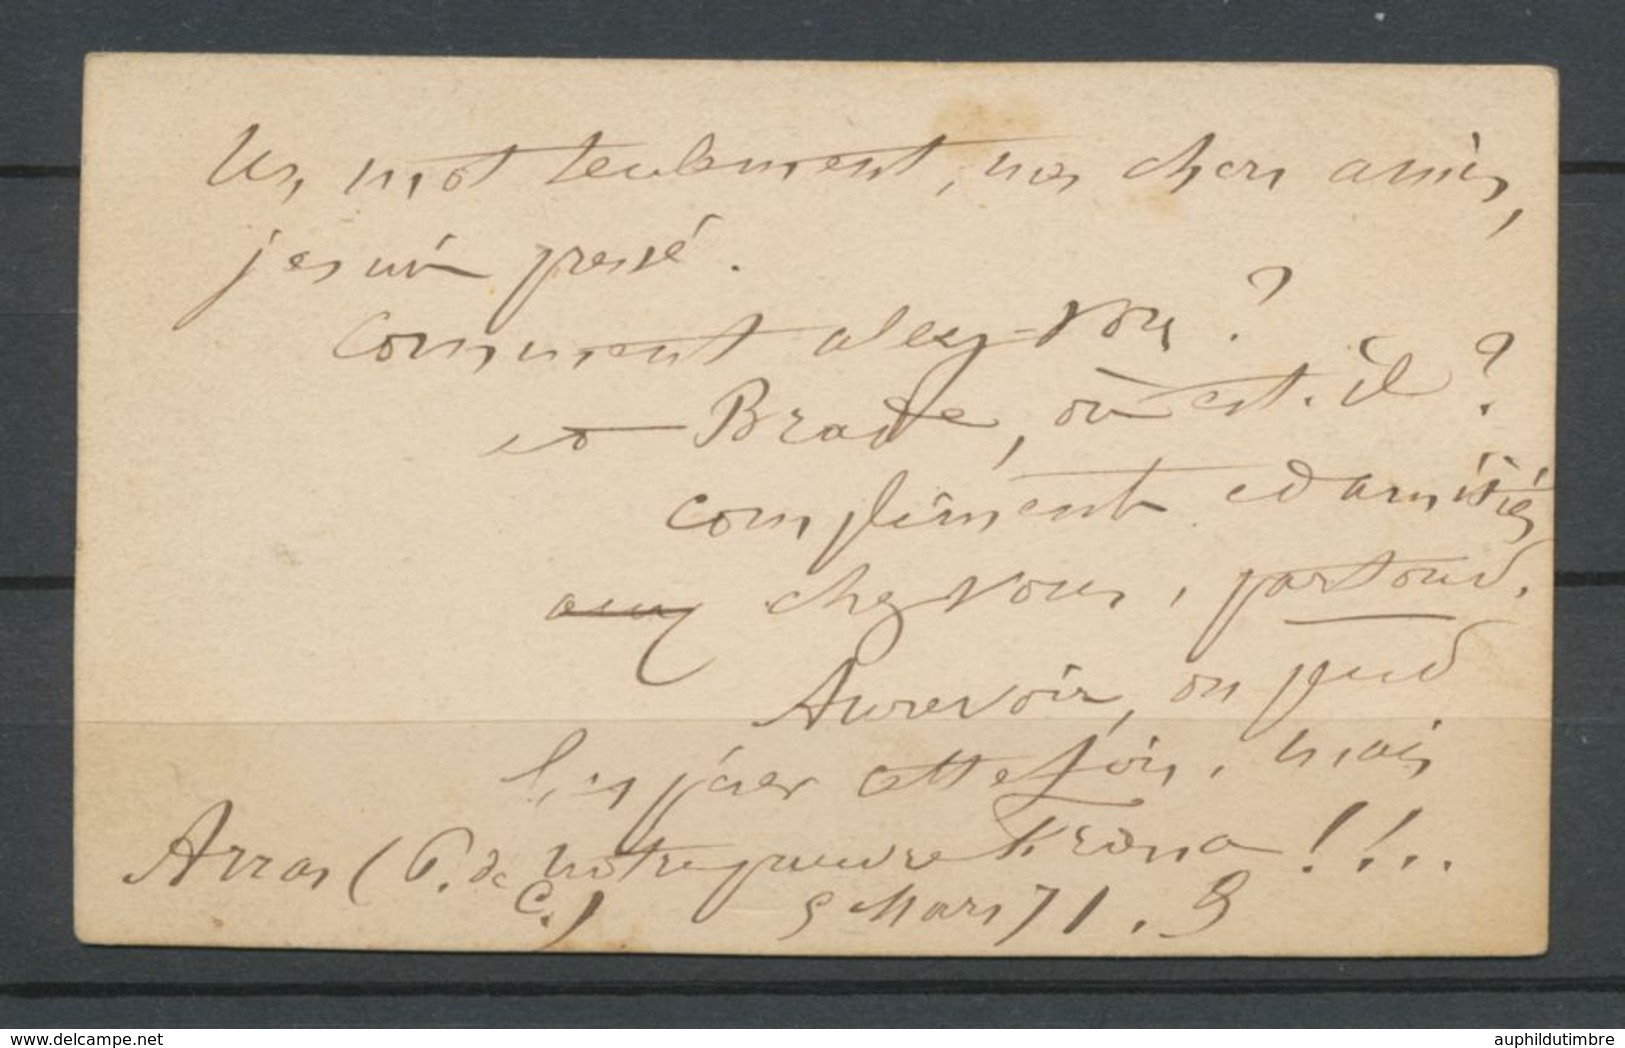 Un mot seulement, mes chers amis,
je suis pressé.
Comment allez-vous ?
et Brade, où est-il ?
compliments et amitiés
chez vous, partout.
Au revoir, on peut
l'espérer cette fois, mais
notre pauvre France !!...
Arras (P. de C.) 5 Mars 71.
auphildutimbre